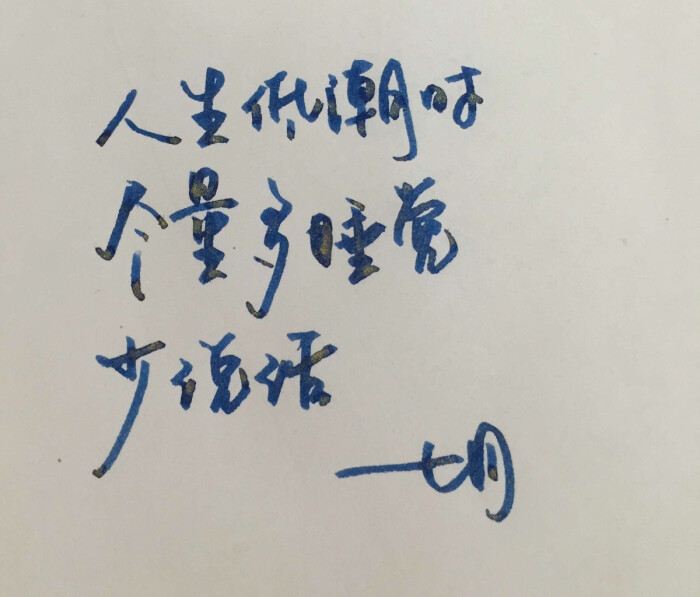 人生低潮时
尽量多睡觉
少说话
一七月